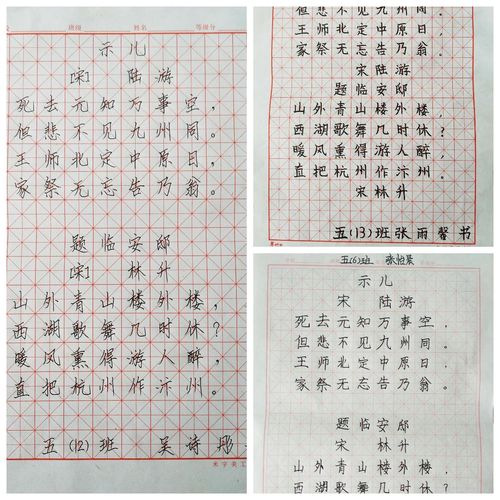 班级 姓名 等级分
示儿
[宋] 陆游
死去元知万事空，
但悲不见九州同。
王师北定中原日，
家祭无忘告乃翁。
题临安邸
[宋] 林升
山外青山楼外楼，
西湖歌舞几时休？
暖风熏得游人醉，
直把杭州作汴州。
五(12)班 吴诗彤
米字美工
但悲不见九州同。
王师北定中原日，
家祭无忘告乃翁。
宋陆游
题临安邸
山外青山楼外楼，
西湖歌舞几时休？
暖风熏得游人醉，
直把杭州作汴州。
宋林升
五(13)班张雨馨书
五(6)班 张怡景
示儿
宋 陆游
死去元知万事空，
但悲不见九州同。
王师北定中原日，
家祭无忘告乃翁。
题临安邸
宋 林升
山外青山楼外楼，
西湖歌舞几时休？